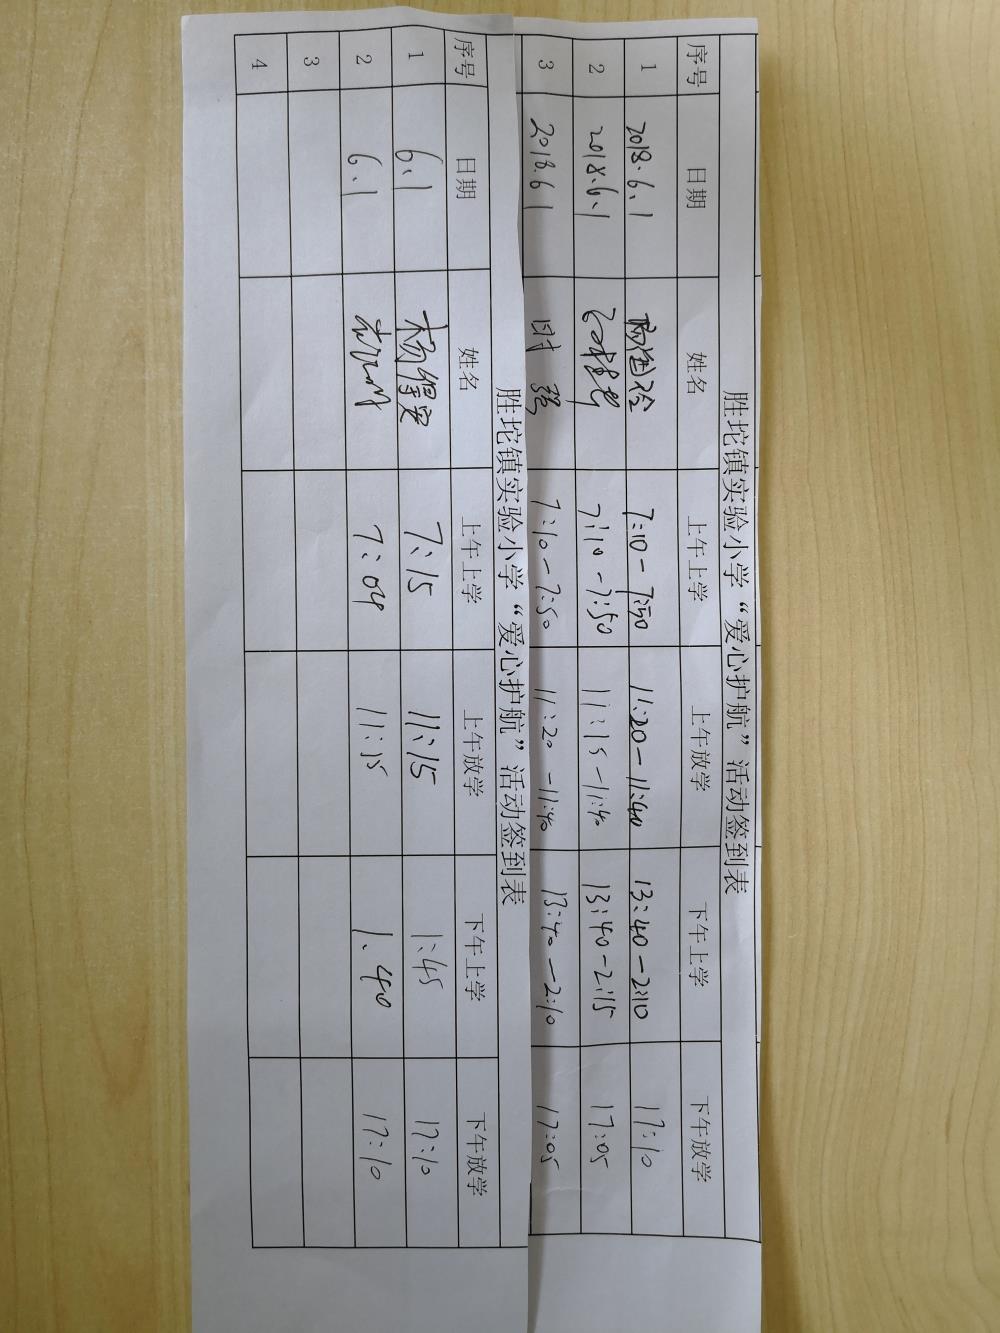 胜坨镇实验小学“爱心护航”活动签到表
序号 日期 姓名 上午上学 上午放学 下午上学 下午放学
1 2018.6.1 7:10-7:50 11:20-11:40 13:40-2:10 17:10
2 2018.6.1 7:10-7:50 11:15-11:40 13:40-2:15 17:05
3 2018.6.1 强 7:10-7:50 11:20-11:40 13:40-2:10 17:05
胜坨镇实验小学“爱心护航”活动签到表
序号 日期 姓名 上午上学 上午放学 下午上学 下午放学
1 6.1 杨 7:15 11:15 1:45 17:10
2 6.1 7:09 11:15 1.40 17:10
3
4